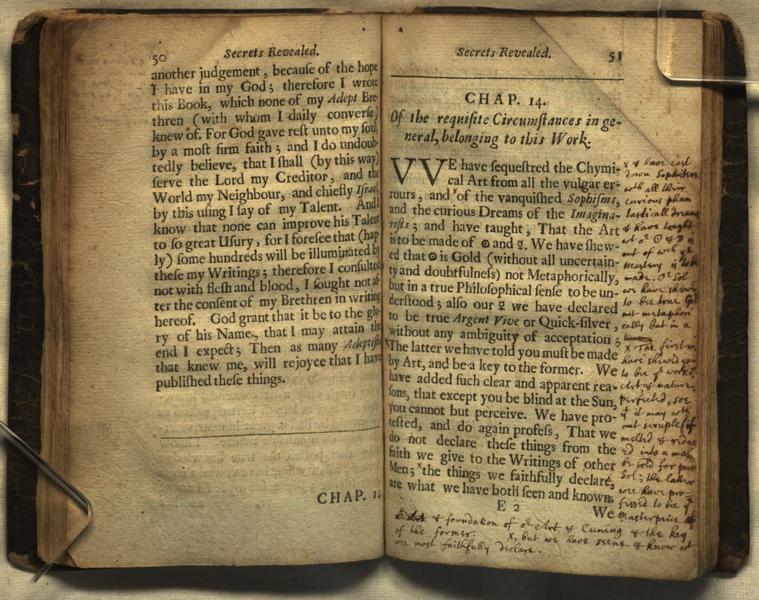 50
Secrets Revealed.
another judgement, because of the hope
I have in my God; therefore I wrote
this Book, which none of my Adept Bre-
thren (with whom I daily converse)
knew of. For God gave rest unto my soul
by a most firm faith; and I do undoub-
tedly believe, that I shall (by this way)
serve the Lord my Creditor, and the
World my Neighbour, and chiefly Israel
by this using I say of my Talent. And I
know that none can improve his Talent
to so great Usury, for I foresee that (hap-
ly) some hundreds will be illuminated by
these my Writings; therefore I consulted
not with flesh and blood, I sought not af-
ter the consent of my Brethren in writing
hereof. God grant that it be to the glo-
ry of his Name, that I may attain the
end I expect; Then as many Adeptists
that knew me, will rejoyce that I have
published these things.
CHAP. 14
Secrets Revealed.
51
CHAP. 14.
Of the requisite Circumstances in ge-
neral, belonging to this Work.
VVE have sequestred the Chymi-
cal Art from all the vulgar er-
rours, and x of the vanquished Sophisms,
and the curious Dreams of the Imagina-
rists; and have taught, That the Art
is to be made of ☉ and ☿. We have shew-
ed that ☉ is Gold (without all uncertain-
ty and doubtfulness) not Metaphorically,
but in a true Philosophical sense to be un-
derstood; also our ☿ we have declared
to be true Argent Vive or Quick-silver,
without any ambiguity of acceptation;
x The latter we have told you must be made
by Art, and be a key to the former. We
have added such clear and apparent rea-
sons, that except you be blind at the Sun,
you cannot but perceive. We have pro-
tested, and do again profess, That we
do not declare these things from the
faith we give to the Writings of other
Men; x the things we faithfully declare,
are what we have both seen and known.
E 2
We
x & have cast
down Sophisters
with all their
curious phan
tasticall dreams
& have taught
Mastery is to be
made. Sol
we have shewn
to be true
not metaphori
cally but in a
x The first we
have shewed you
to be of
of nature
perfected, soe
it may with
out scruple (if
melted &
ed into a mass
be sold for pure
Sol; the latter
wee have pro
fessed to be
Masterpiece
& foundation of Art & Cuning & the key
of the former. x, but we have seene & know
wee most faithfully declare.